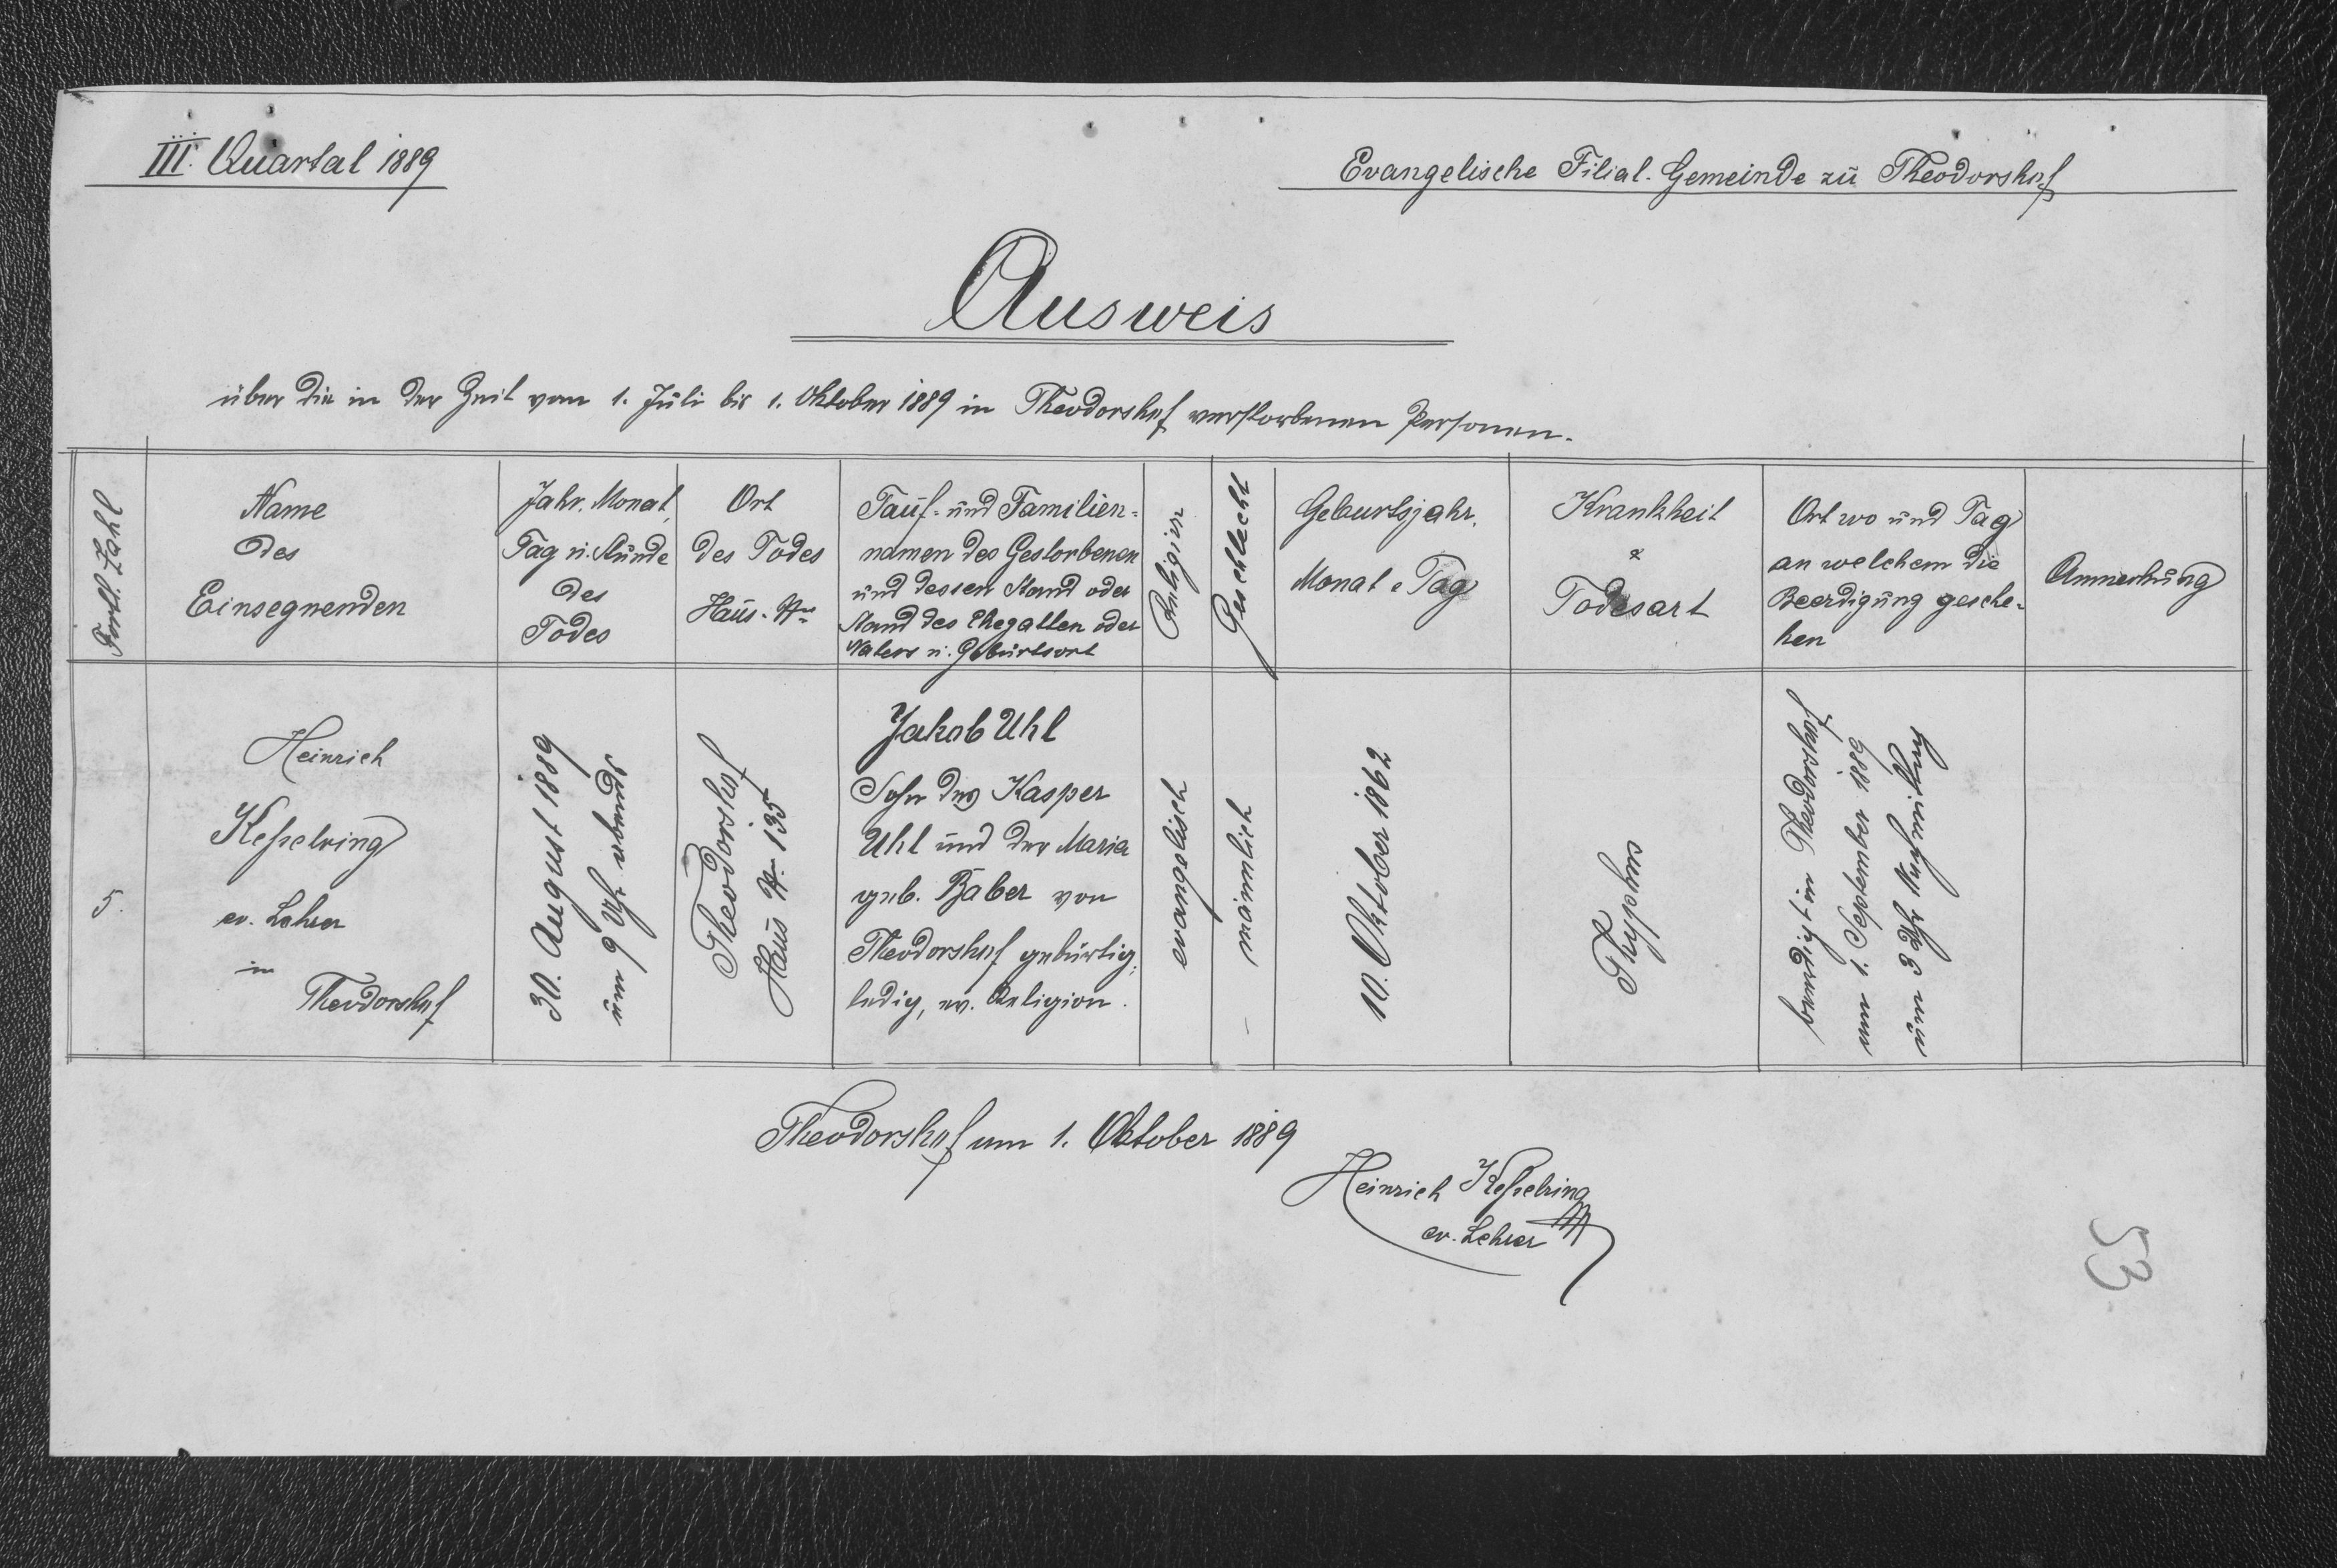 III. Quartal 1889
Evangelische Filial-Gemeinde zu Theodorshof
Ausweis
über die in der Zeit vom 1. Juli bis 1. Oktober 1889 in Theodorshof verstorbenen Personen.
Fortl. Zahl
Name
des
Einsegnenden
Jahr, Monat,
Tag u. Stunde
des
Todes
Ort
des Todes
Haus-Nr.
Tauf- und Familien-
namen des Gestorbenen
und dessen Stand oder
Stand des Ehegatten oder
Vaters u. Geburtsort
Religion
Geschlecht
Geburtsjahr,
Monat & Tag
Krankheit
&
Todesart
Ort wo und Tag
an welchem die
Beerdigung gesche-
hen
Anmerkung
5.
Heinrich
Keßelring
ev. Lehrer
in
Theodorshof
30. August 1889
um 9 Uhr abends
Theodorshof
Haus Nr. 135
Jakob Uhl
Sohn des Kasper
Uhl und der Maria
geb. Baber von
Theodorshof gebürtig,
ledig, ev. Religion.
evangelisch
männlich
10. Oktober 1862
Thyphus
beerdigt in Theodorshof
am 1. September 1889
um 3 Uhr Nachmittag
Theodorshof am 1. Oktober 1889
Heinrich Keßelring
ev. Lehrer
53